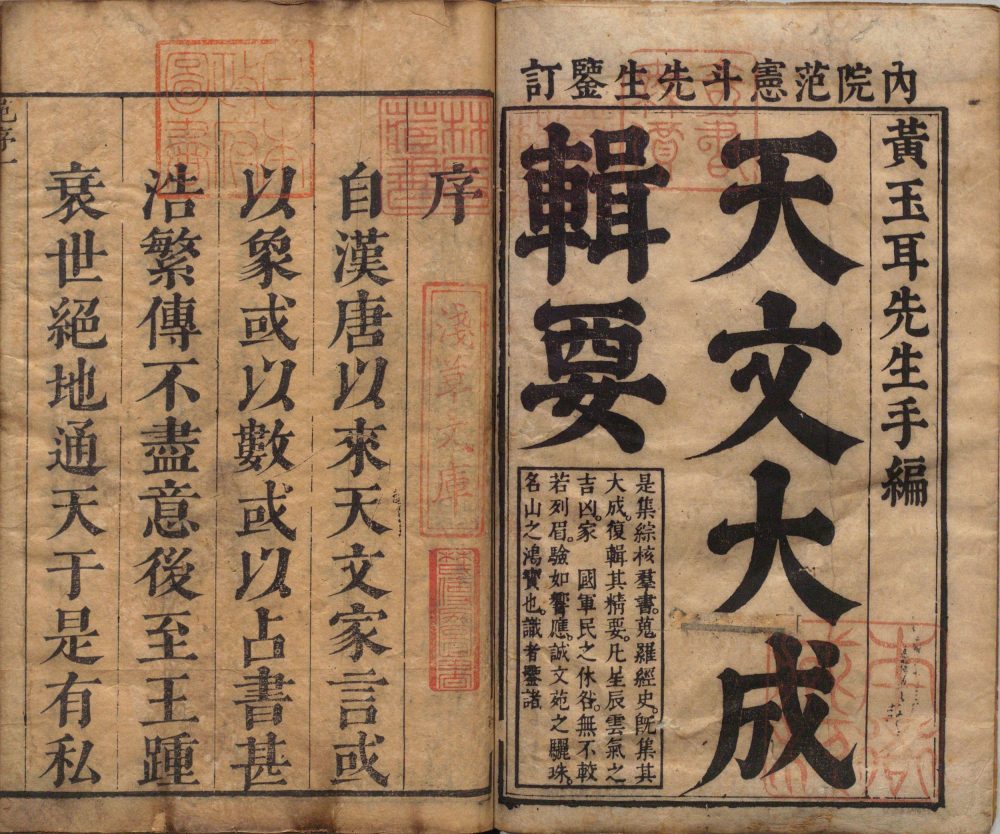 內院范憲斗先生鑒訂
黃玉耳先生手編
天文大成
輯要
是集綜核羣書蒐羅經史旣集其
大成復輯其精要凡星辰雲氣之
吉凶家 國軍民之休咎無不較
若列眉驗如響應誠文苑之驪珠
名山之鴻寶也識者鑒諸
序
自漢唐以來天文家言或
以象或以數或以占書甚
浩繁傳不盡意後至王踵
衰世絕地通天于是有私
淺草文庫